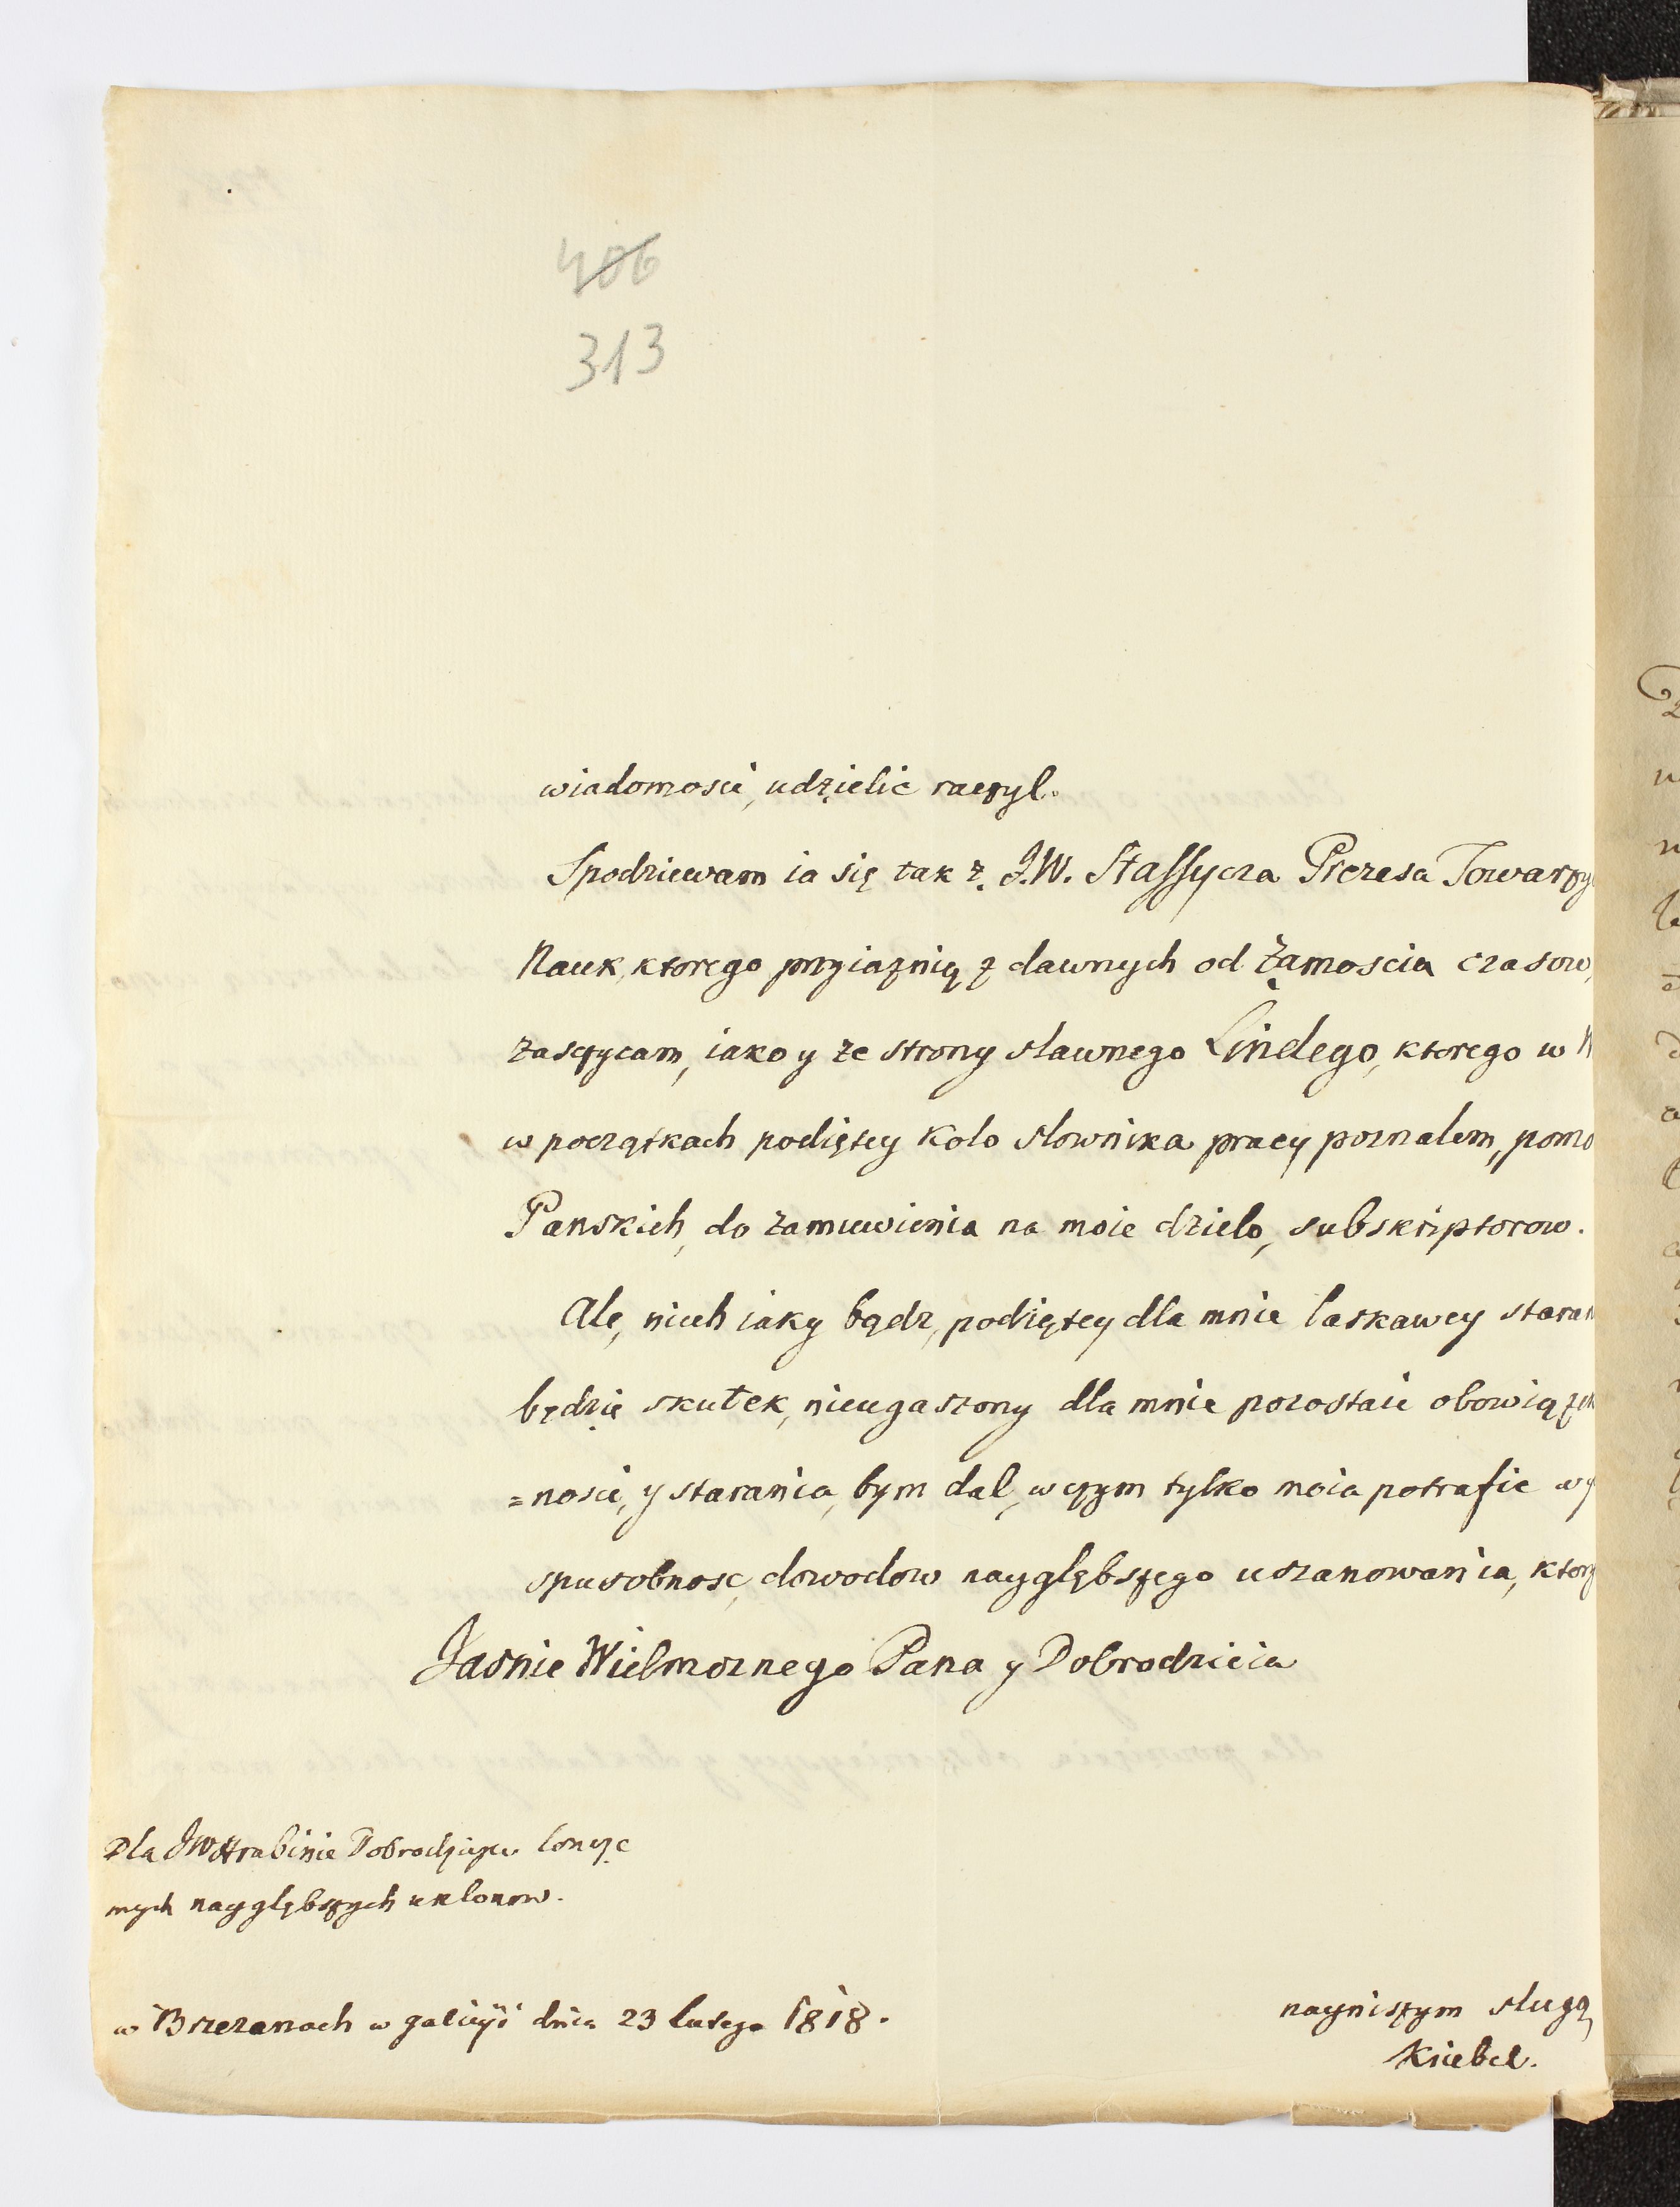 406
313
wiadomosci, udzielic raczyl.
Spodziewam ia się tak z J.W. Stassycza Prezesa Towarzy
Nauk, ktorego przyiaznią z dawnych od Zamoscia czasow,
zasczycam, iako y ze strony slawnego Lindego, ktorego w
w początkach podiętey kolo slownika pracy poznalem, pomo
Panskich, do zamuwienia na moie dzielo, subskriptorow.
Ale, niech iaky bądz, podiętey dla mnie laskawey staran
będzie skutek, nieugaszony dla mnie pozostaie obowiązek
=nosci, y starania, bym dal, w czym tylko moia potrafic wy
spusobnosc, dowodow nayglębszego uszanowania, ktory
Jasnie Wielmoznego Pana y Dobrodzieia
Dla JW Hrabinie Dobrodzieyce
mych nayglębszych uklonow.
w Brzezanach w galicyi dnia 23 lutego 1818.
nayniszym slugą
Kriebel.